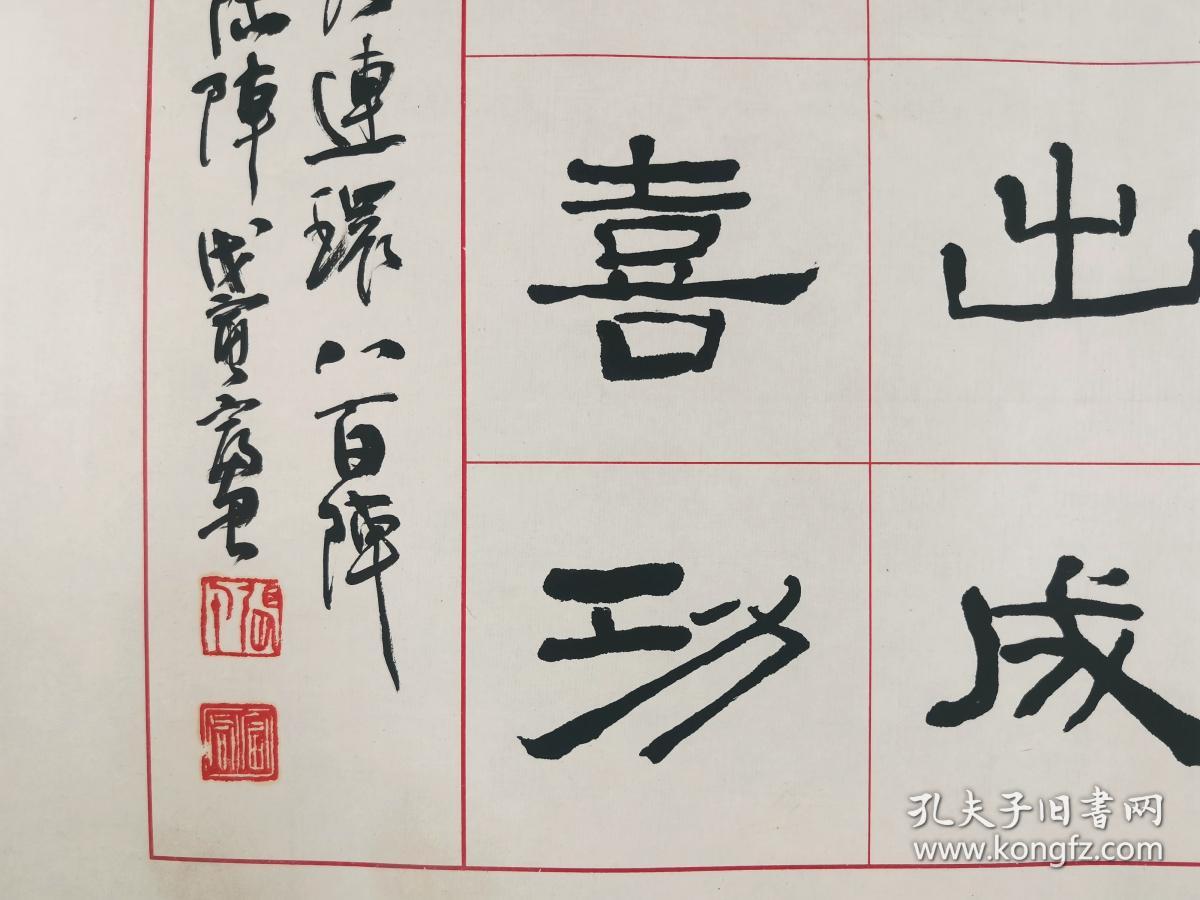 出成
喜功
連環八百陣
陣戊寅
孔夫子旧書网
www.kongfz.com